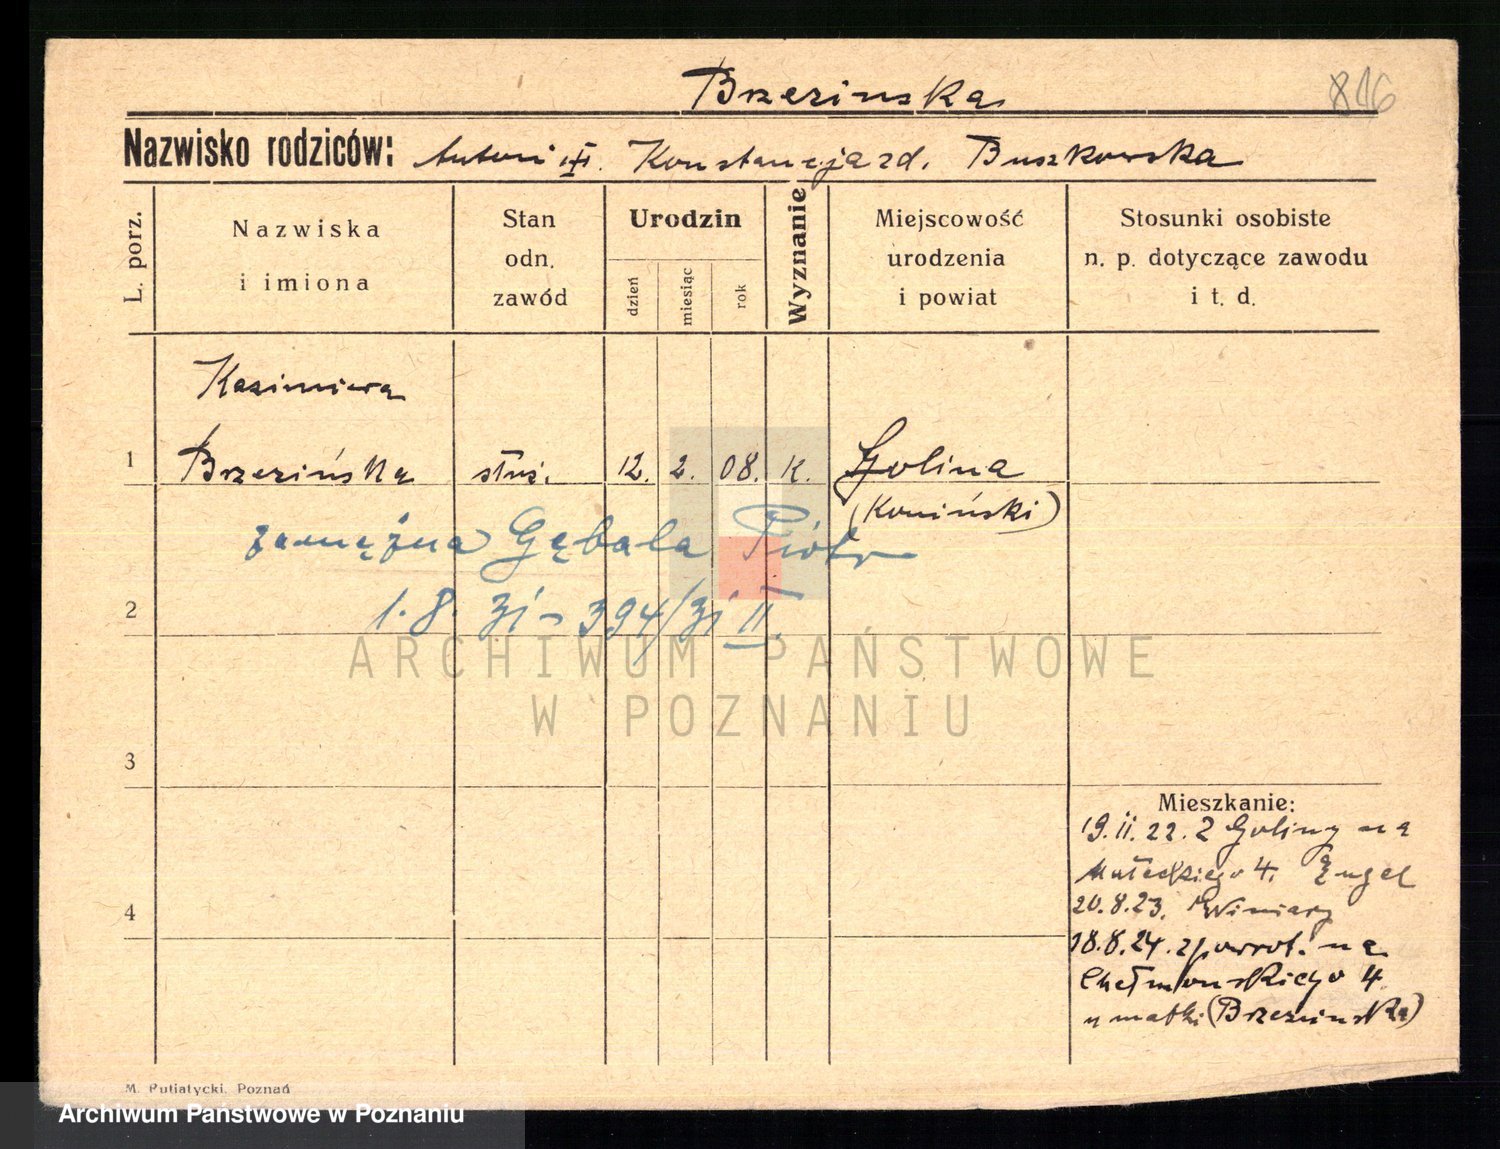 Brzezinska 816
Nazwisko rodziców: Antoni Konstancja zd. Buszkowska
L. porz.
Nazwiska
i imiona
Stan
odn.
zawód
Urodzin
dzień
miesiąc
rok
Wyznanie
Miejscowość
urodzenia
i powiat
Stosunki osobiste
n. p. dotyczące zawodu
i t. d.
Kazimiera
1 Brzezińska służ. 12. 2. 08. K. Golina
(Koniński)
zamężna Gębala Piotr
1. 8. 31 - 394/31 II.
2
ARCHIWUM PAŃSTWOWE
W POZNANIU
3
Mieszkanie:
19.II.22. Z Goliny na
Małeckiego 4.
4
20.8.23. Winiary
18.8.24. zpowrot. na
Chełmonskiego 4
u matki (Brzezinska)
M. Putiatycki, Poznań
Archiwum Państwowe w Poznaniu